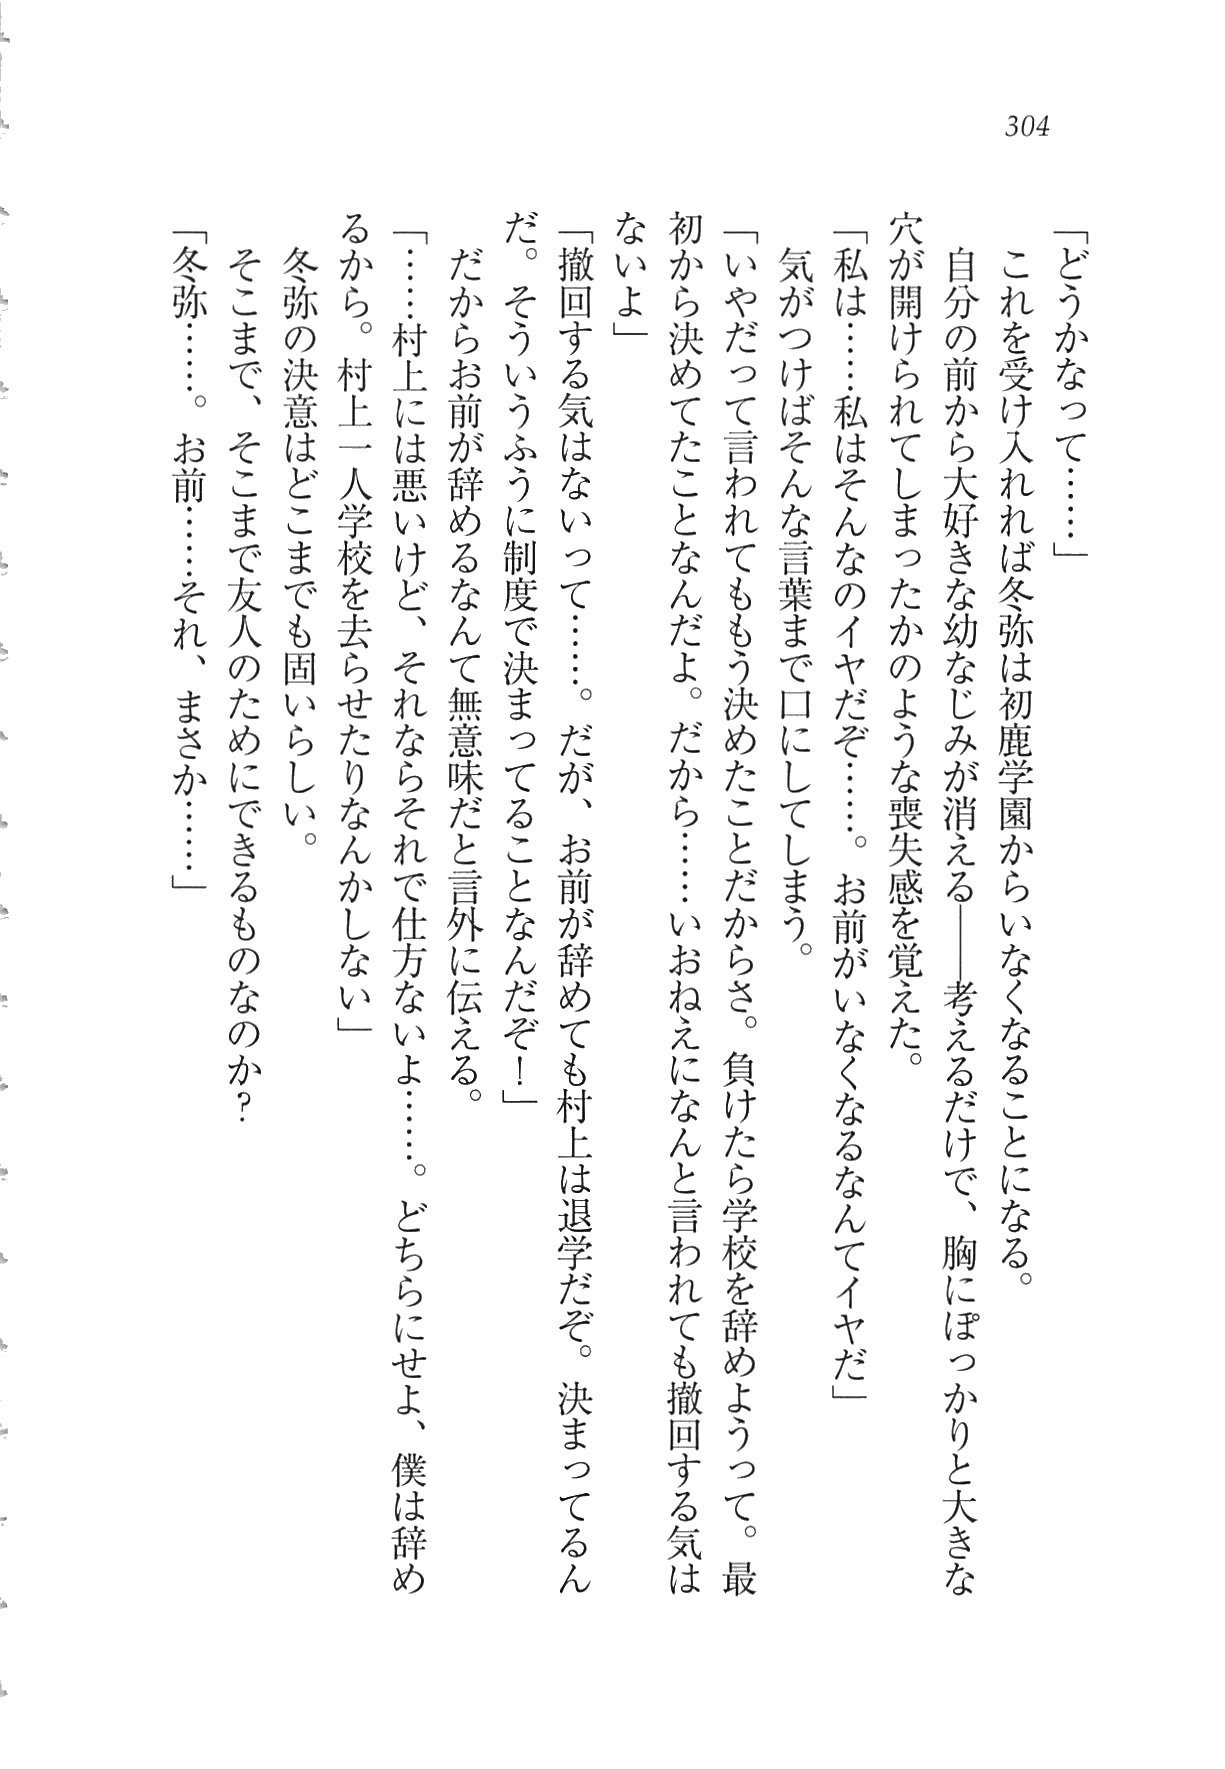 304
「どうかなって……」
　これを受け入れれば冬弥は初鹿学園からいなくなることになる。
　自分の前から大好きな幼なじみが消える――考えるだけで、胸にぽっかりと大きな
穴が開けられてしまったかのような喪失感を覚えた。
「私は……私はそんなのイヤだぞ……。お前がいなくなるなんてイヤだ」
　気がつけばそんな言葉まで口にしてしまう。
「いやだって言われてももう決めたことだからさ。負けたら学校を辞めようって。最
初から決めてたことなんだよ。だから……いおねえになんと言われても撤回する気は
ないよ」
「撤回する気はないって……。だが、お前が辞めても村上は退学だぞ。決まってるん
だ。そういうふうに制度で決まってることなんだぞ！」
　だからお前が辞めるなんて無意味だと言外に伝える。
「……村上には悪いけど、それならそれで仕方ないよ……。どちらにせよ、僕は辞め
るから。村上一人学校を去らせたりなんかしない」
　冬弥の決意はどこまでも固いらしい。
　そこまで、そこまで友人のためにできるものなのか？
「冬弥……。お前……それ、まさか……」